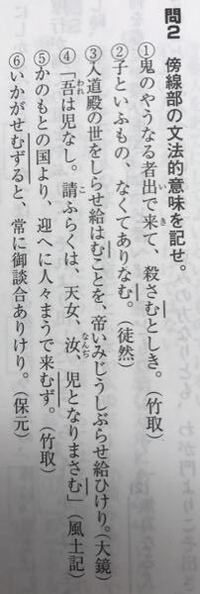 問2　傍線部の文法的意味を記せ。
①鬼のやうなる者出で来て、殺さむとしき。（竹取）
②子といふもの、なくてありなむ。（徒然）
③入道殿の世をしらせ給はむことを、帝いみじうしぶらせ給ひけり。（大鏡）
④「吾は児なし。請ふらくは、天女、汝、児となりまさむ」（風土記）
⑤かのもとの国より、迎へに人々まうで来むず。（竹取）
⑥いかがせむずると、常に御談合ありけり。（保元）